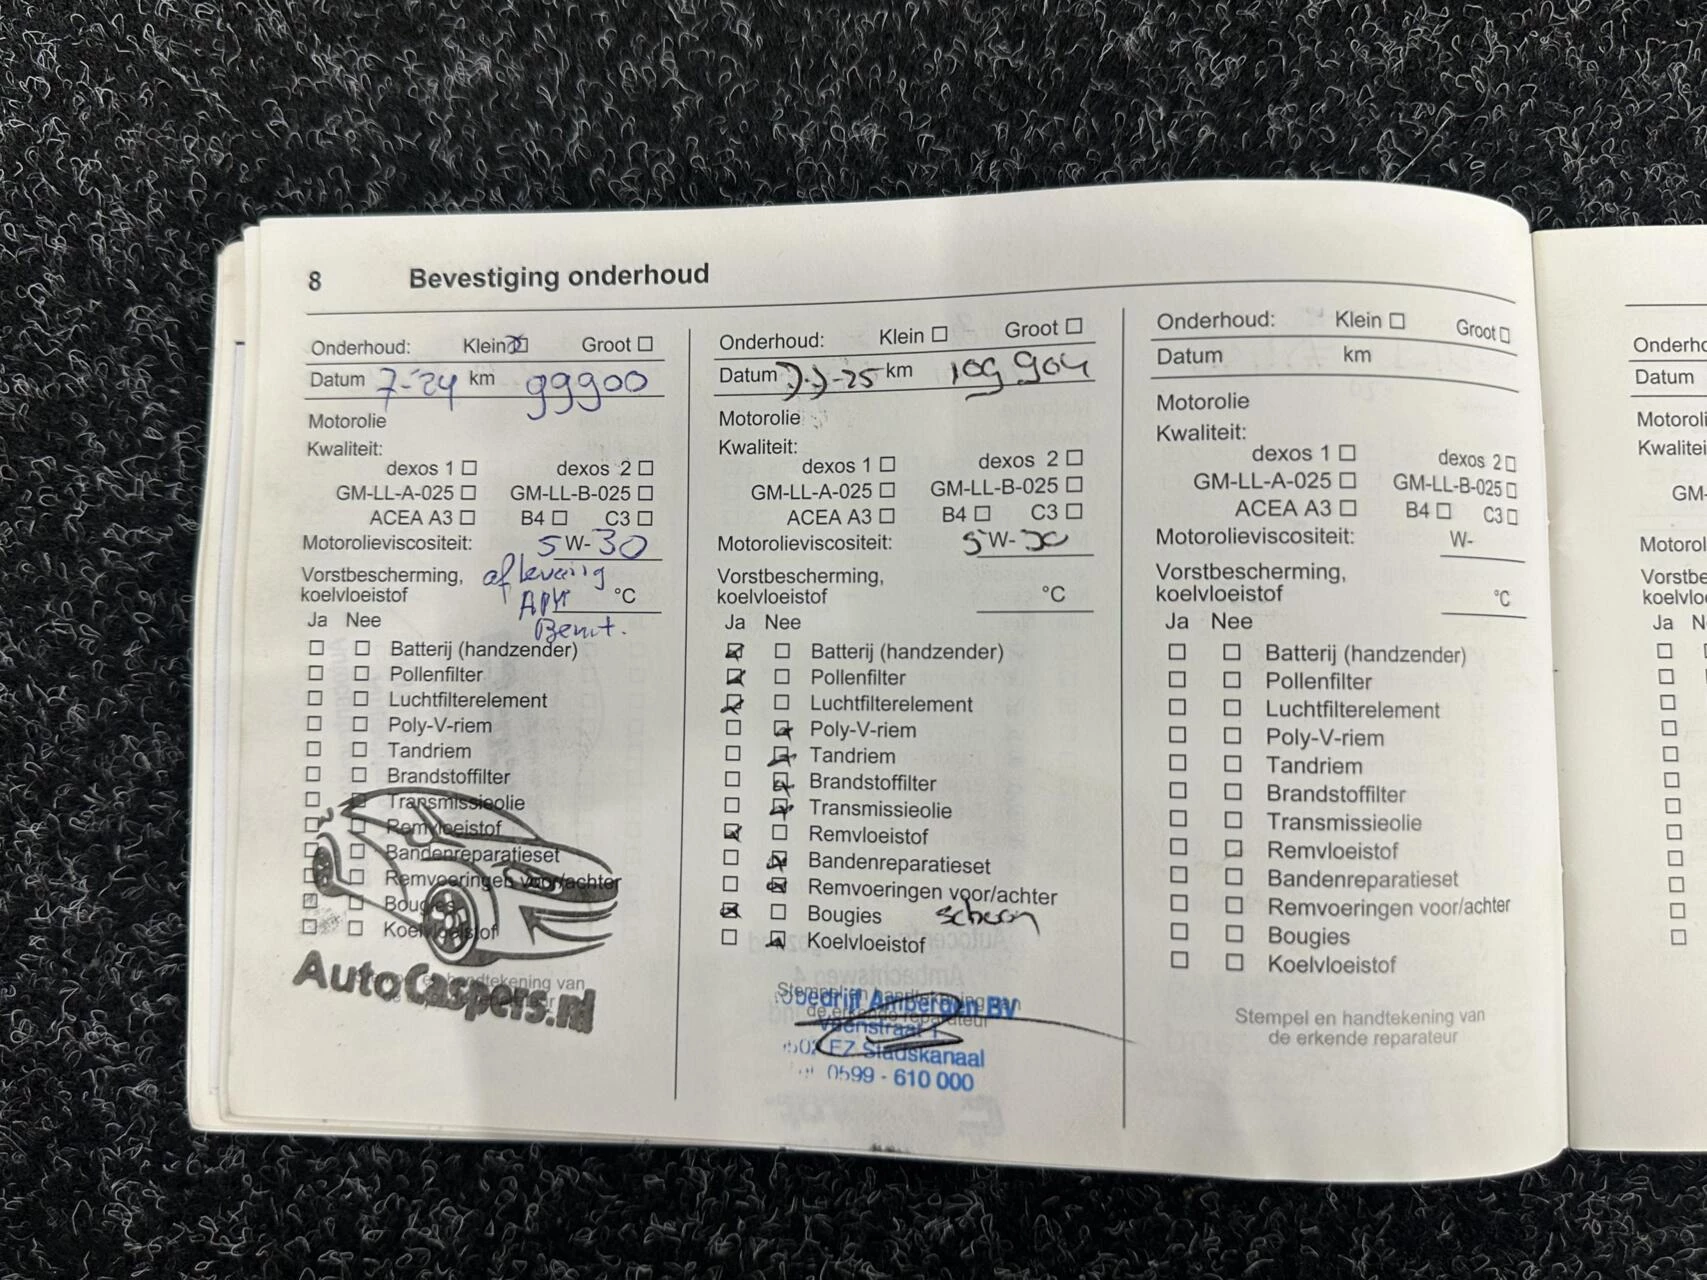 8 Bevestiging onderhoud
Onderhoud: Klein Groot
Datum 7-'24 km 99900
Motorolie
Kwaliteit:
dexos 1 dexos 2
GM-LL-A-025 GM-LL-B-025
ACEA A3 B4 C3
Motorolieviscositeit: 5 W- 30
Vorstbescherming, aflevering
koelvloeistof APK °C
Beurt.
Ja Nee
Batterij (handzender)
Pollenfilter
Luchtfilterelement
Poly-V-riem
Tandriem
Brandstoffilter
Transmissieolie
Remvloeistof
Bandenreparatieset
Remvoeringen voor/achter
Bougies
Koelvloeistof
AutoCaspers.nl
handtekening van
Onderhoud: Klein Groot
Datum -25 km 109 904
Motorolie
Kwaliteit:
dexos 1 dexos 2
GM-LL-A-025 GM-LL-B-025
ACEA A3 B4 C3
Motorolieviscositeit: 5 W- 30
Vorstbescherming,
koelvloeistof °C
Ja Nee
Batterij (handzender)
Pollenfilter
Luchtfilterelement
Poly-V-riem
Tandriem
Brandstoffilter
Transmissieolie
Remvloeistof
Bandenreparatieset
Remvoeringen voor/achter
Bougies schoon
Koelvloeistof
Stempel en handtekening van
de erkende reparateur
obedrijf Ambergen BV
Veenstraat 1
EZ Stadskanaal
0599 - 610 000
Onderhoud: Klein Groot
Datum km
Motorolie
Kwaliteit:
dexos 1 dexos 2
GM-LL-A-025 GM-LL-B-025
ACEA A3 B4 C3
Motorolieviscositeit: W-
Vorstbescherming,
koelvloeistof °C
Ja Nee
Batterij (handzender)
Pollenfilter
Luchtfilterelement
Poly-V-riem
Tandriem
Brandstoffilter
Transmissieolie
Remvloeistof
Bandenreparatieset
Remvoeringen voor/achter
Bougies
Koelvloeistof
Stempel en handtekening van
de erkende reparateur
Onderho
Datum
Motoroli
Kwalitei
GM-
Motorol
Vorstbe
koelvlo
Ja N